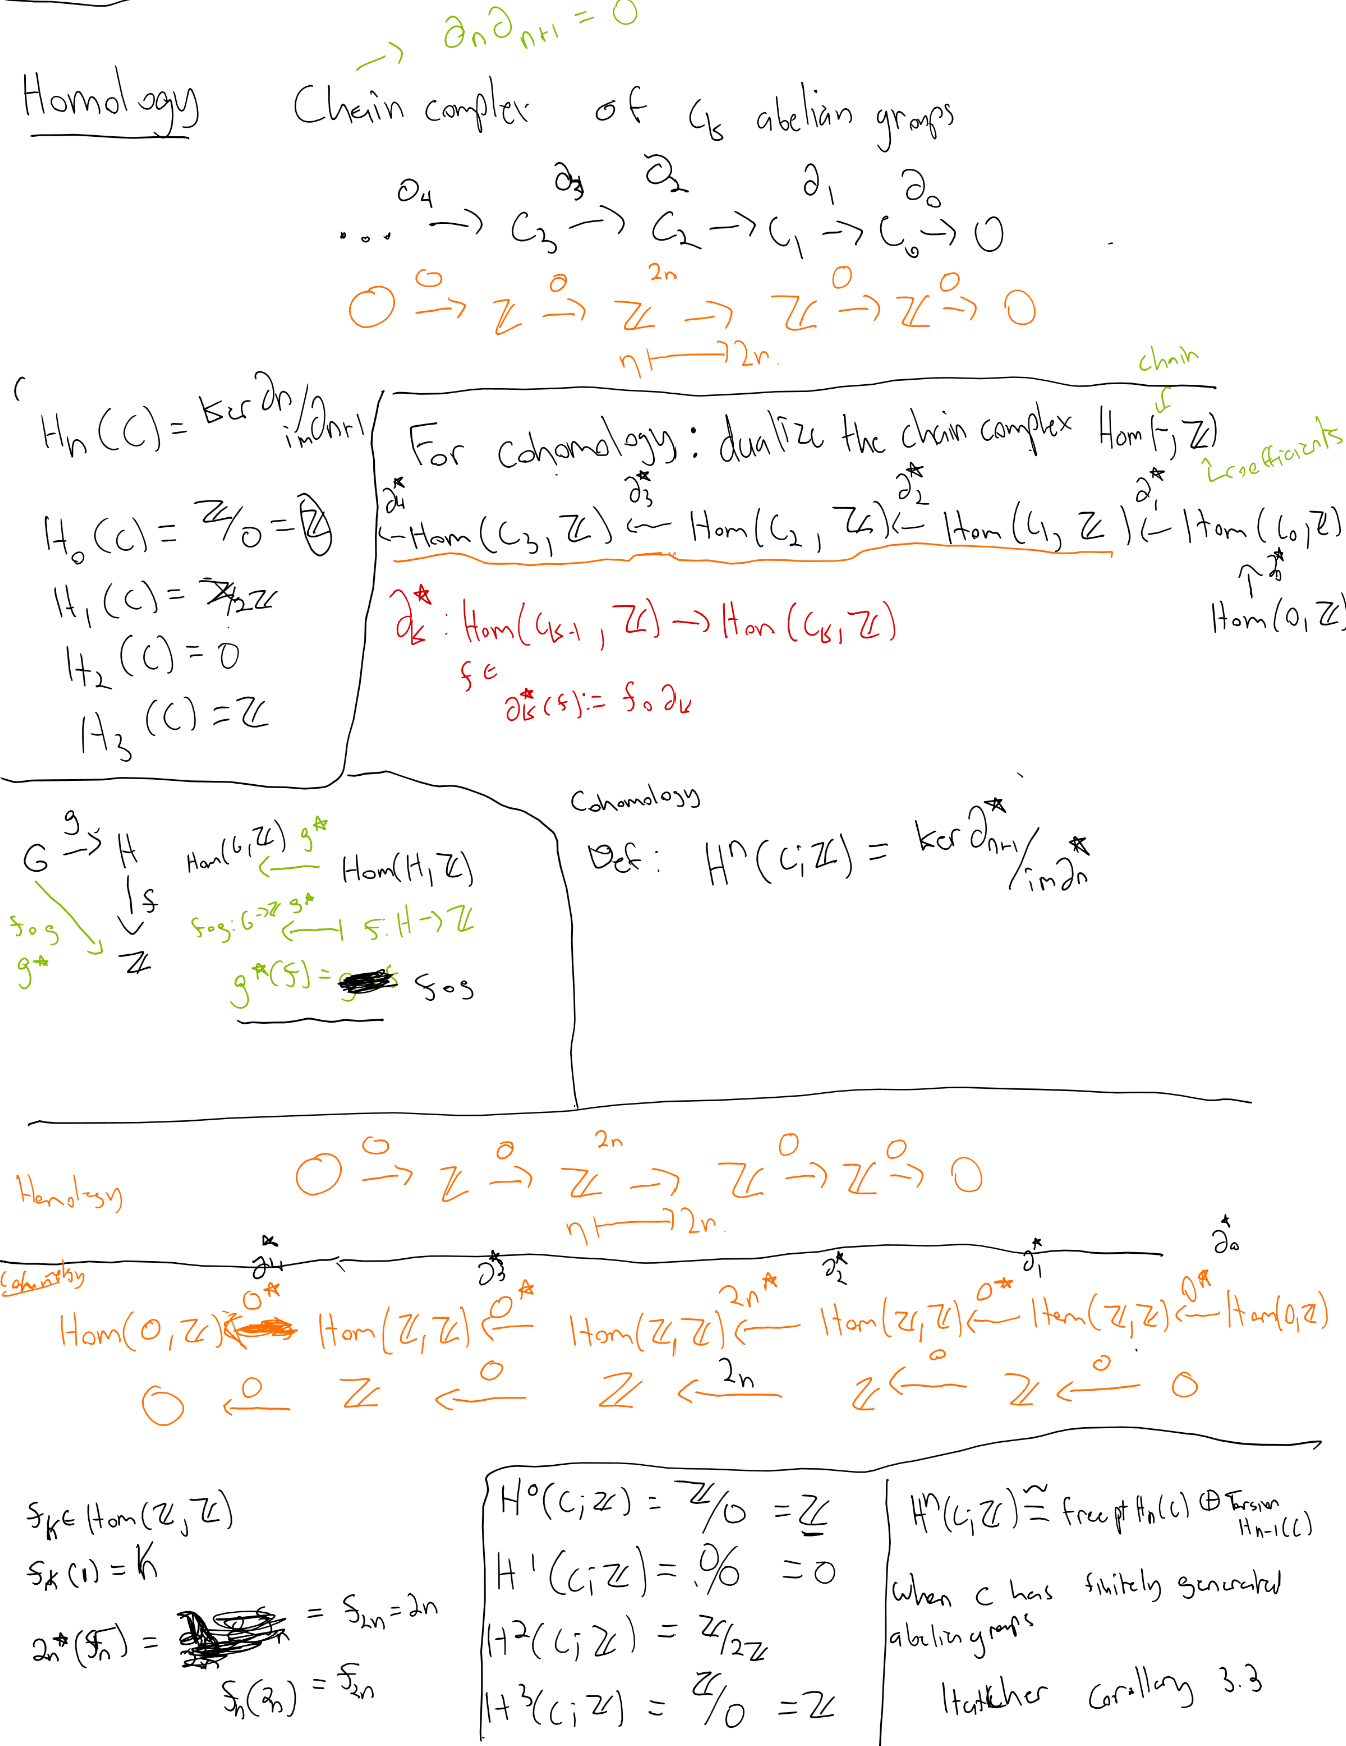 → ∂n∂n+1 = 0
Homology Chain complex of Ck abelian groups
∂4 ∂3 ∂2 ∂1 ∂0
... → C3 → C2 → C1 → C0 → 0
0 0 2n 0 0
0 → ℤ → ℤ → ℤ → ℤ → 0
n ↦ 2n.
Hn(C) = ker ∂n/im ∂n+1
H0(C) = ℤ/0 = ℤ
H1(C) = ℤ/2ℤ
H2(C) = 0
H3(C) = ℤ
chain
For cohomology: dualize the chain complex Hom(-, ℤ)
coefficients
∂4* ∂3* ∂2* ∂1*
← Hom(C3, ℤ) ← Hom(C2, ℤ) ← Hom(C1, ℤ) ← Hom(C0, ℤ)
↑ ∂0*
Hom(0, ℤ)
∂k* : Hom(Ck-1, ℤ) → Hom(Ck, ℤ)
f ∈
∂k*(f) := f∘∂k
g
G → H
↓ f
f∘g
g*
ℤ
Hom(G, ℤ) g* ← Hom(H, ℤ)
f∘g: G→ℤ g* ↤ f: H → ℤ
g*(f) = f∘g
Cohomology
Def: Hⁿ(C; ℤ) = ker ∂*n+1/im ∂n*
Homology
0 0 2n 0 0
0 → ℤ → ℤ → ℤ → ℤ → 0
n ↦ 2n.
∂4* ∂3* ∂2* ∂1* ∂0*
Cohomology
0* 0* 2n* 0* 0*
Hom(0, ℤ) ← Hom(ℤ, ℤ) ← Hom(ℤ, ℤ) ← Hom(ℤ, ℤ) ← Hom(ℤ, ℤ) ← Hom(0, ℤ)
0 0 2n 0 0
0 ← ℤ ← ℤ ← ℤ ← ℤ ← 0
fk ∈ Hom(ℤ, ℤ)
fk(1) = k
2n*(fn) = = f2n = 2n
fn(2n) = f2n
H⁰(C; ℤ) = ℤ/0 = ℤ
H¹(C; ℤ) = 0/0 = 0
H²(C; ℤ) = ℤ/2ℤ
H³(C; ℤ) = ℤ/0 = ℤ
Hⁿ(C; ℤ) ≅ free pt Hn(C) ⊕ Torsion Hn-1(C)
when C has finitely generated
abelian groups
Hatcher Corollary 3.3